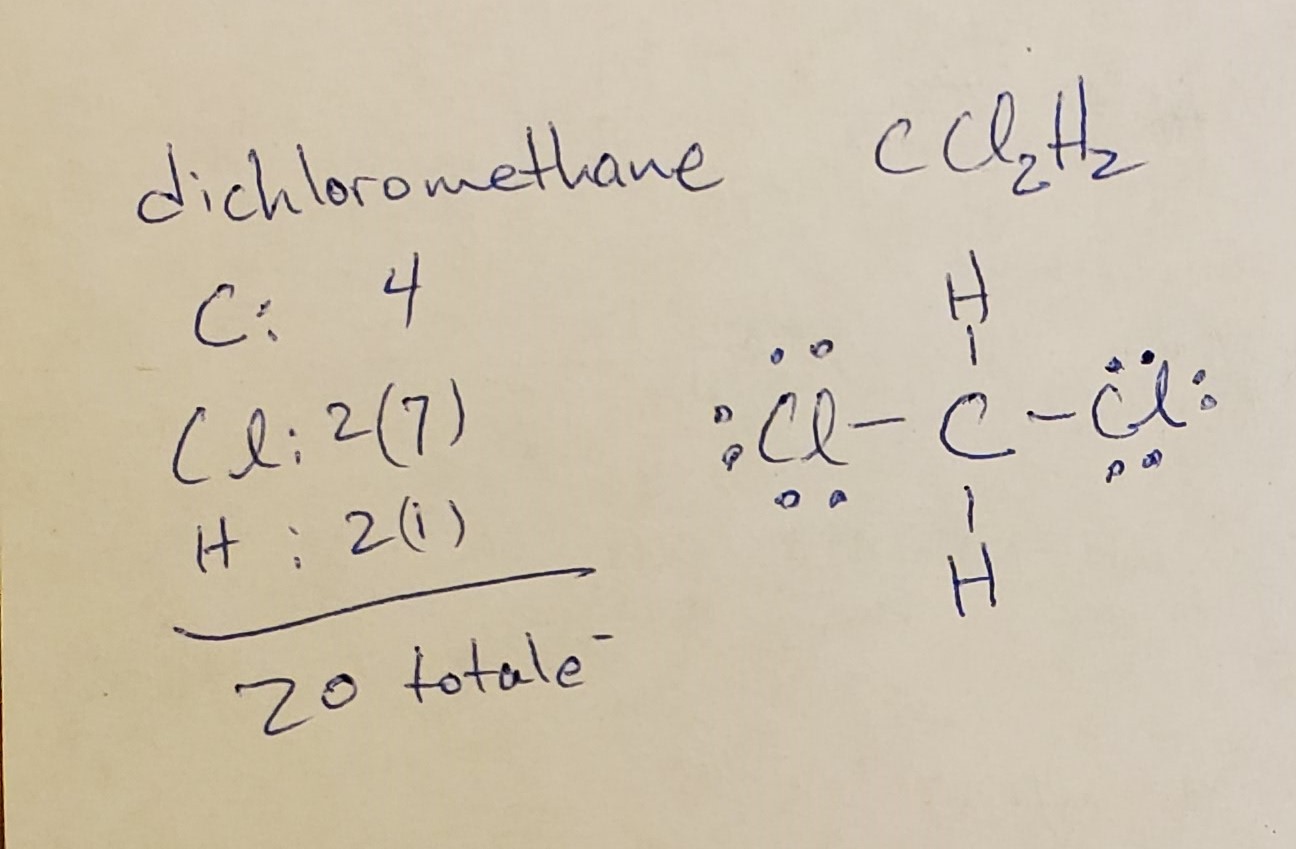 dichloromethane CCl₂H₂
C: 4
Cl: 2(7)
H : 2(1)
20 total e⁻
H
:Cl – C – Cl:
H